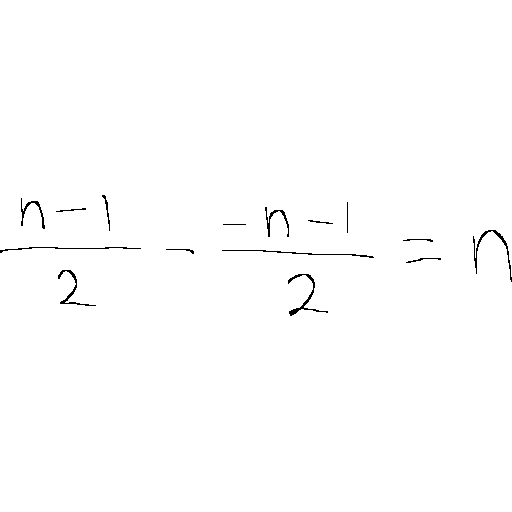 \frac{n-1}{2} - \frac{-n-1}{2} = n